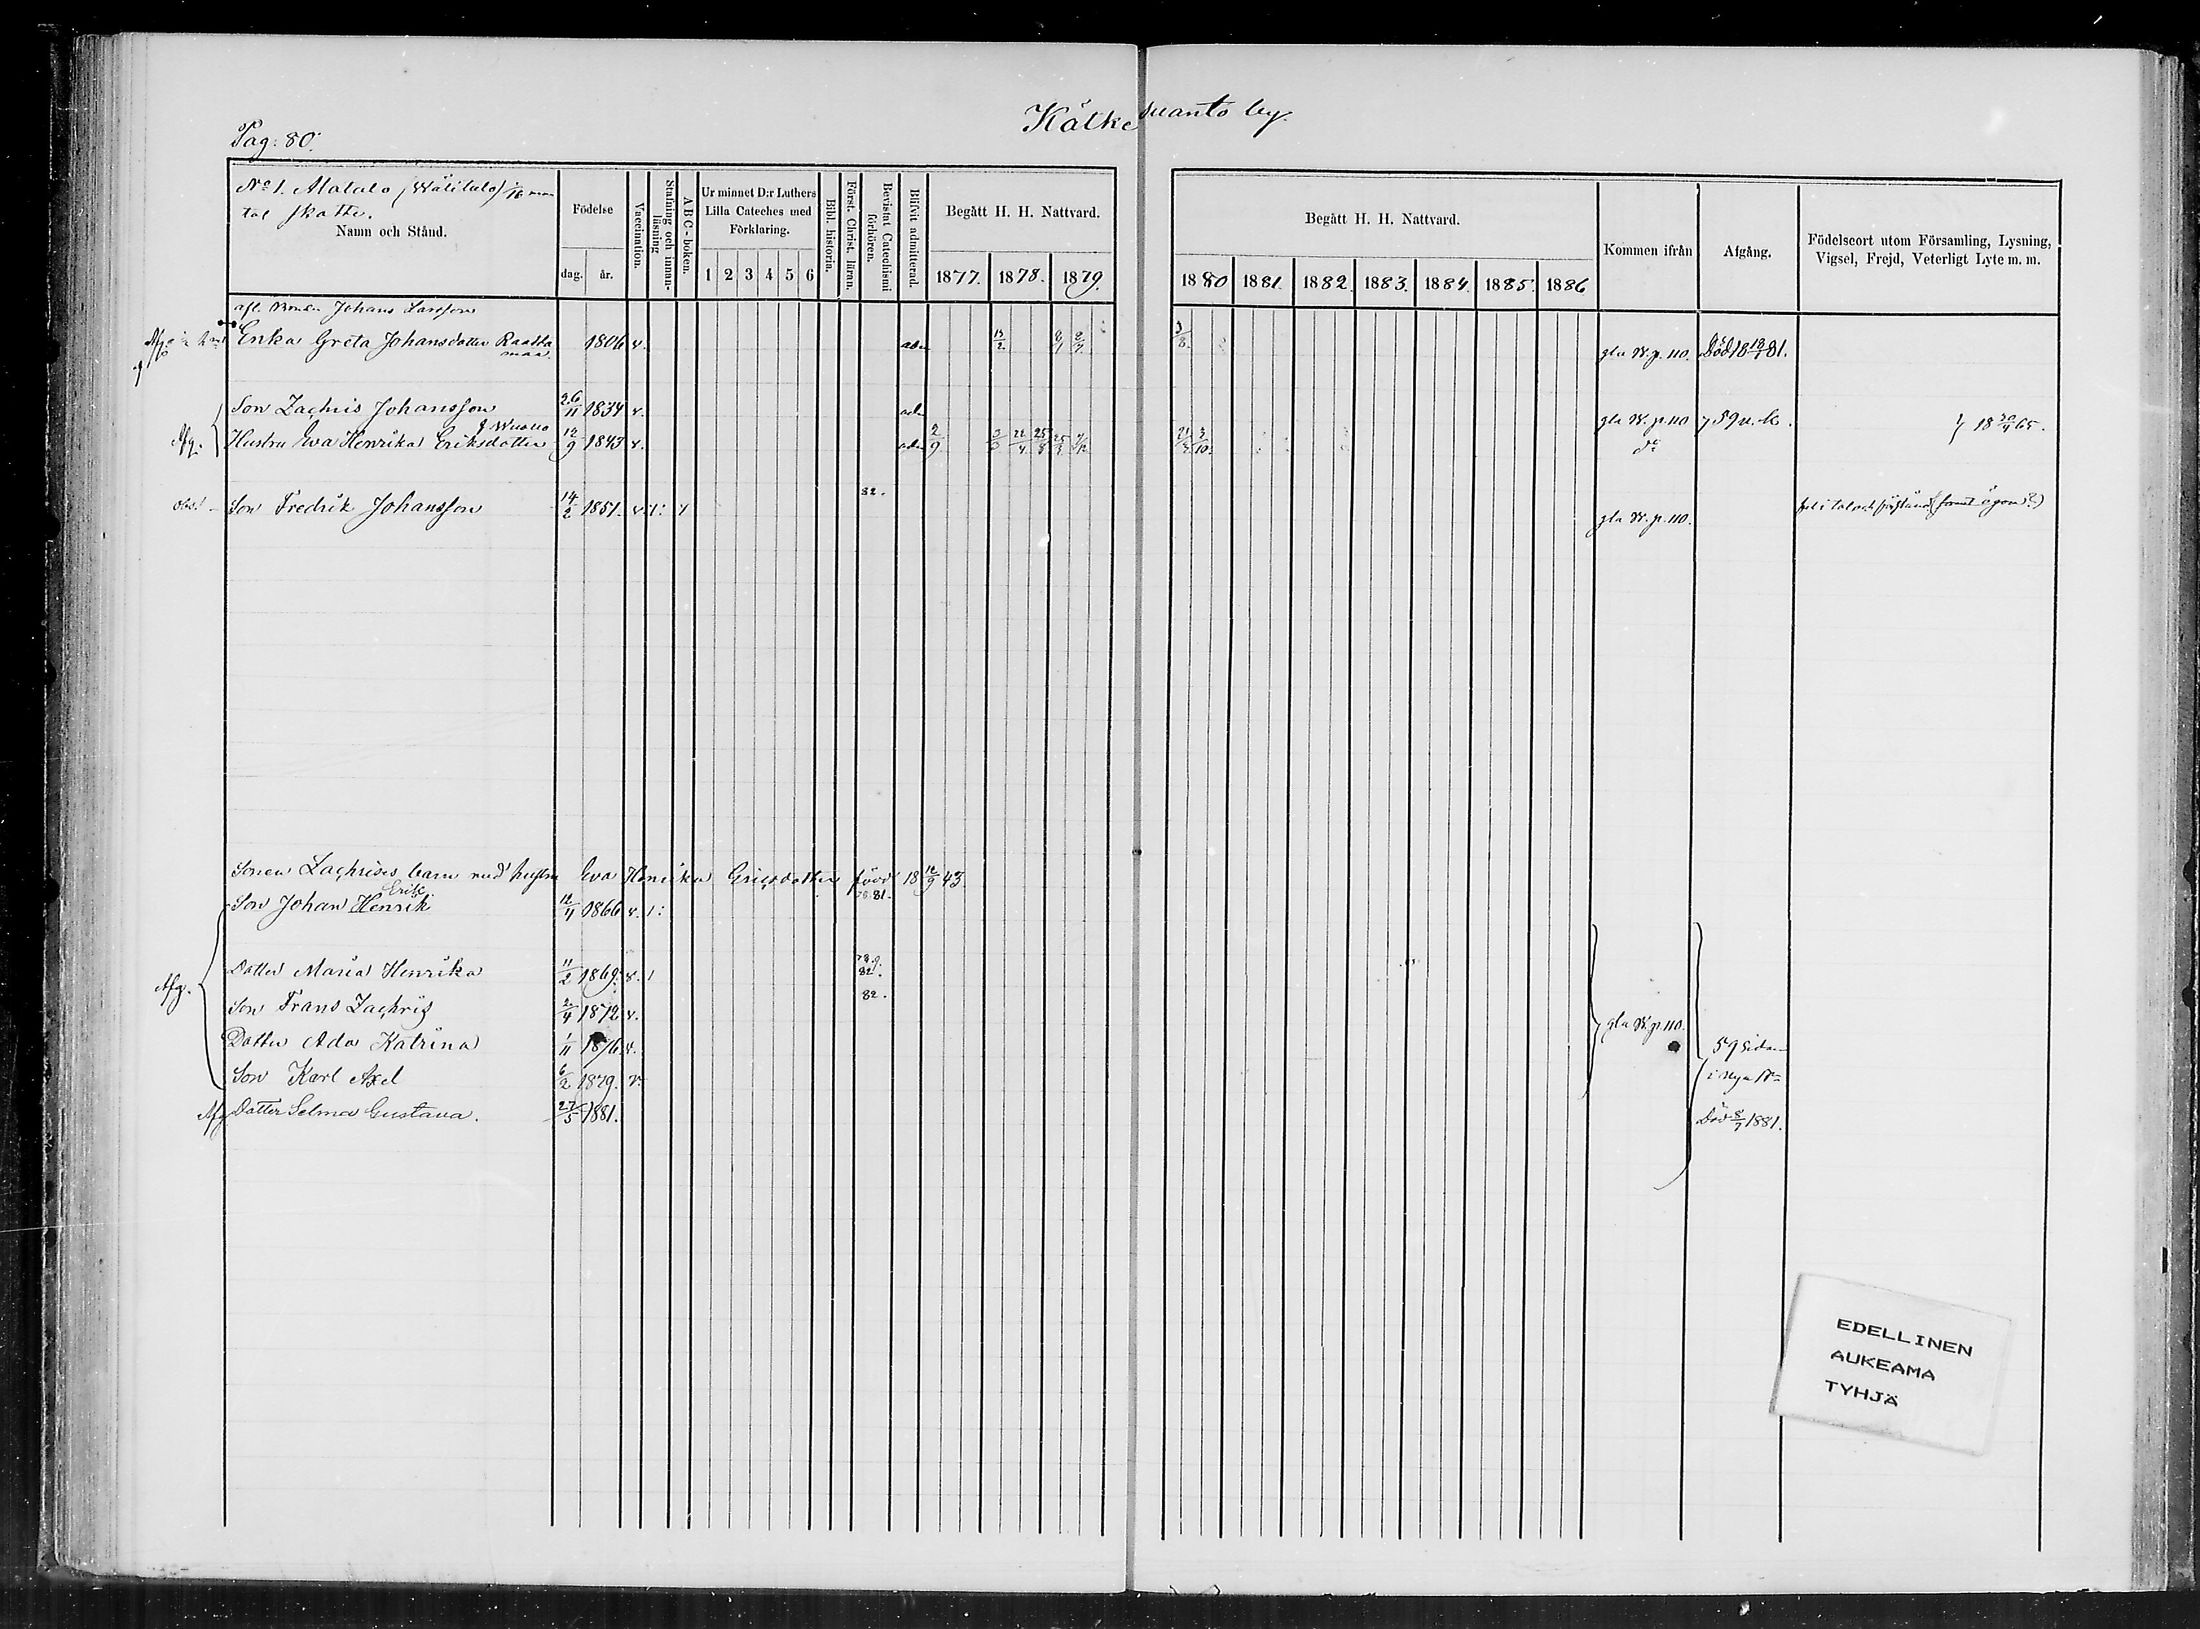 Kälkesuanto by.
Pag: 80.
No 1. Alatalo (Wälitalo) 1/16 man
tal skatte.
Namn och Stånd.
Födelse
dag. år.
Vaccination.
Stafning och innanläsning
ABC-boken.
Ur minnet D:r Luthers
Lilla Cateches med
Förklaring.
1 2 3 4 5 6
Bibl. historia.
Först. Christ. läran.
Bevistat Catechismi förhören.
Blifvit admitterad.
Begått H. H. Nattvard.
1877. 1878. 1879.
Begått H. H. Nattvard.
1880 1881. 1882. 1883. 1884. 1885. 1886
Kommen ifrån
Afgång.
Födelseort utom Församling, Lysning,
Vigsel, Frejd, Veterligt Lyte m. m.
afl. Johans Larsson
Erika Greta Johansdotter Raatta
maa. 1806 v. adm gla W. p. 110. Död 18 18/1 81.
Son Zachris Johansson 26/11 1834 v. adm gla W. p. 110 59 n. b. 18 30/4 65.
Afg. Hustru Eva Henrika Eriksdotter 12/9 1843 v. adm 2/9 do
82.
obs! Son Fredrik Johansson 14/2 1851. v. 1: 1 gla W. p. 110.
Sonen Zachrises barn med hustru Eva Henrika Ericsdotter född 18 12/9 43.
Erik 81.
Son Johan Henrik 12/4 1866 v. 1:
Dotter Maria Henrika 11/2 1869. v. 1 82.
Afg. Son Frans Zachris 2/4 1872 v. 82.
Dotter Ada Katrina 1/11 1876 v. gla W. p. 110. 59 sidan
Son Karl Axel 6/2 1879. v. i nya No
Afg Dotter Selma Gustava. 27/5 1881. Död 8/7 1881.
EDELLINEN
AUKEAMA
TYHJÄ